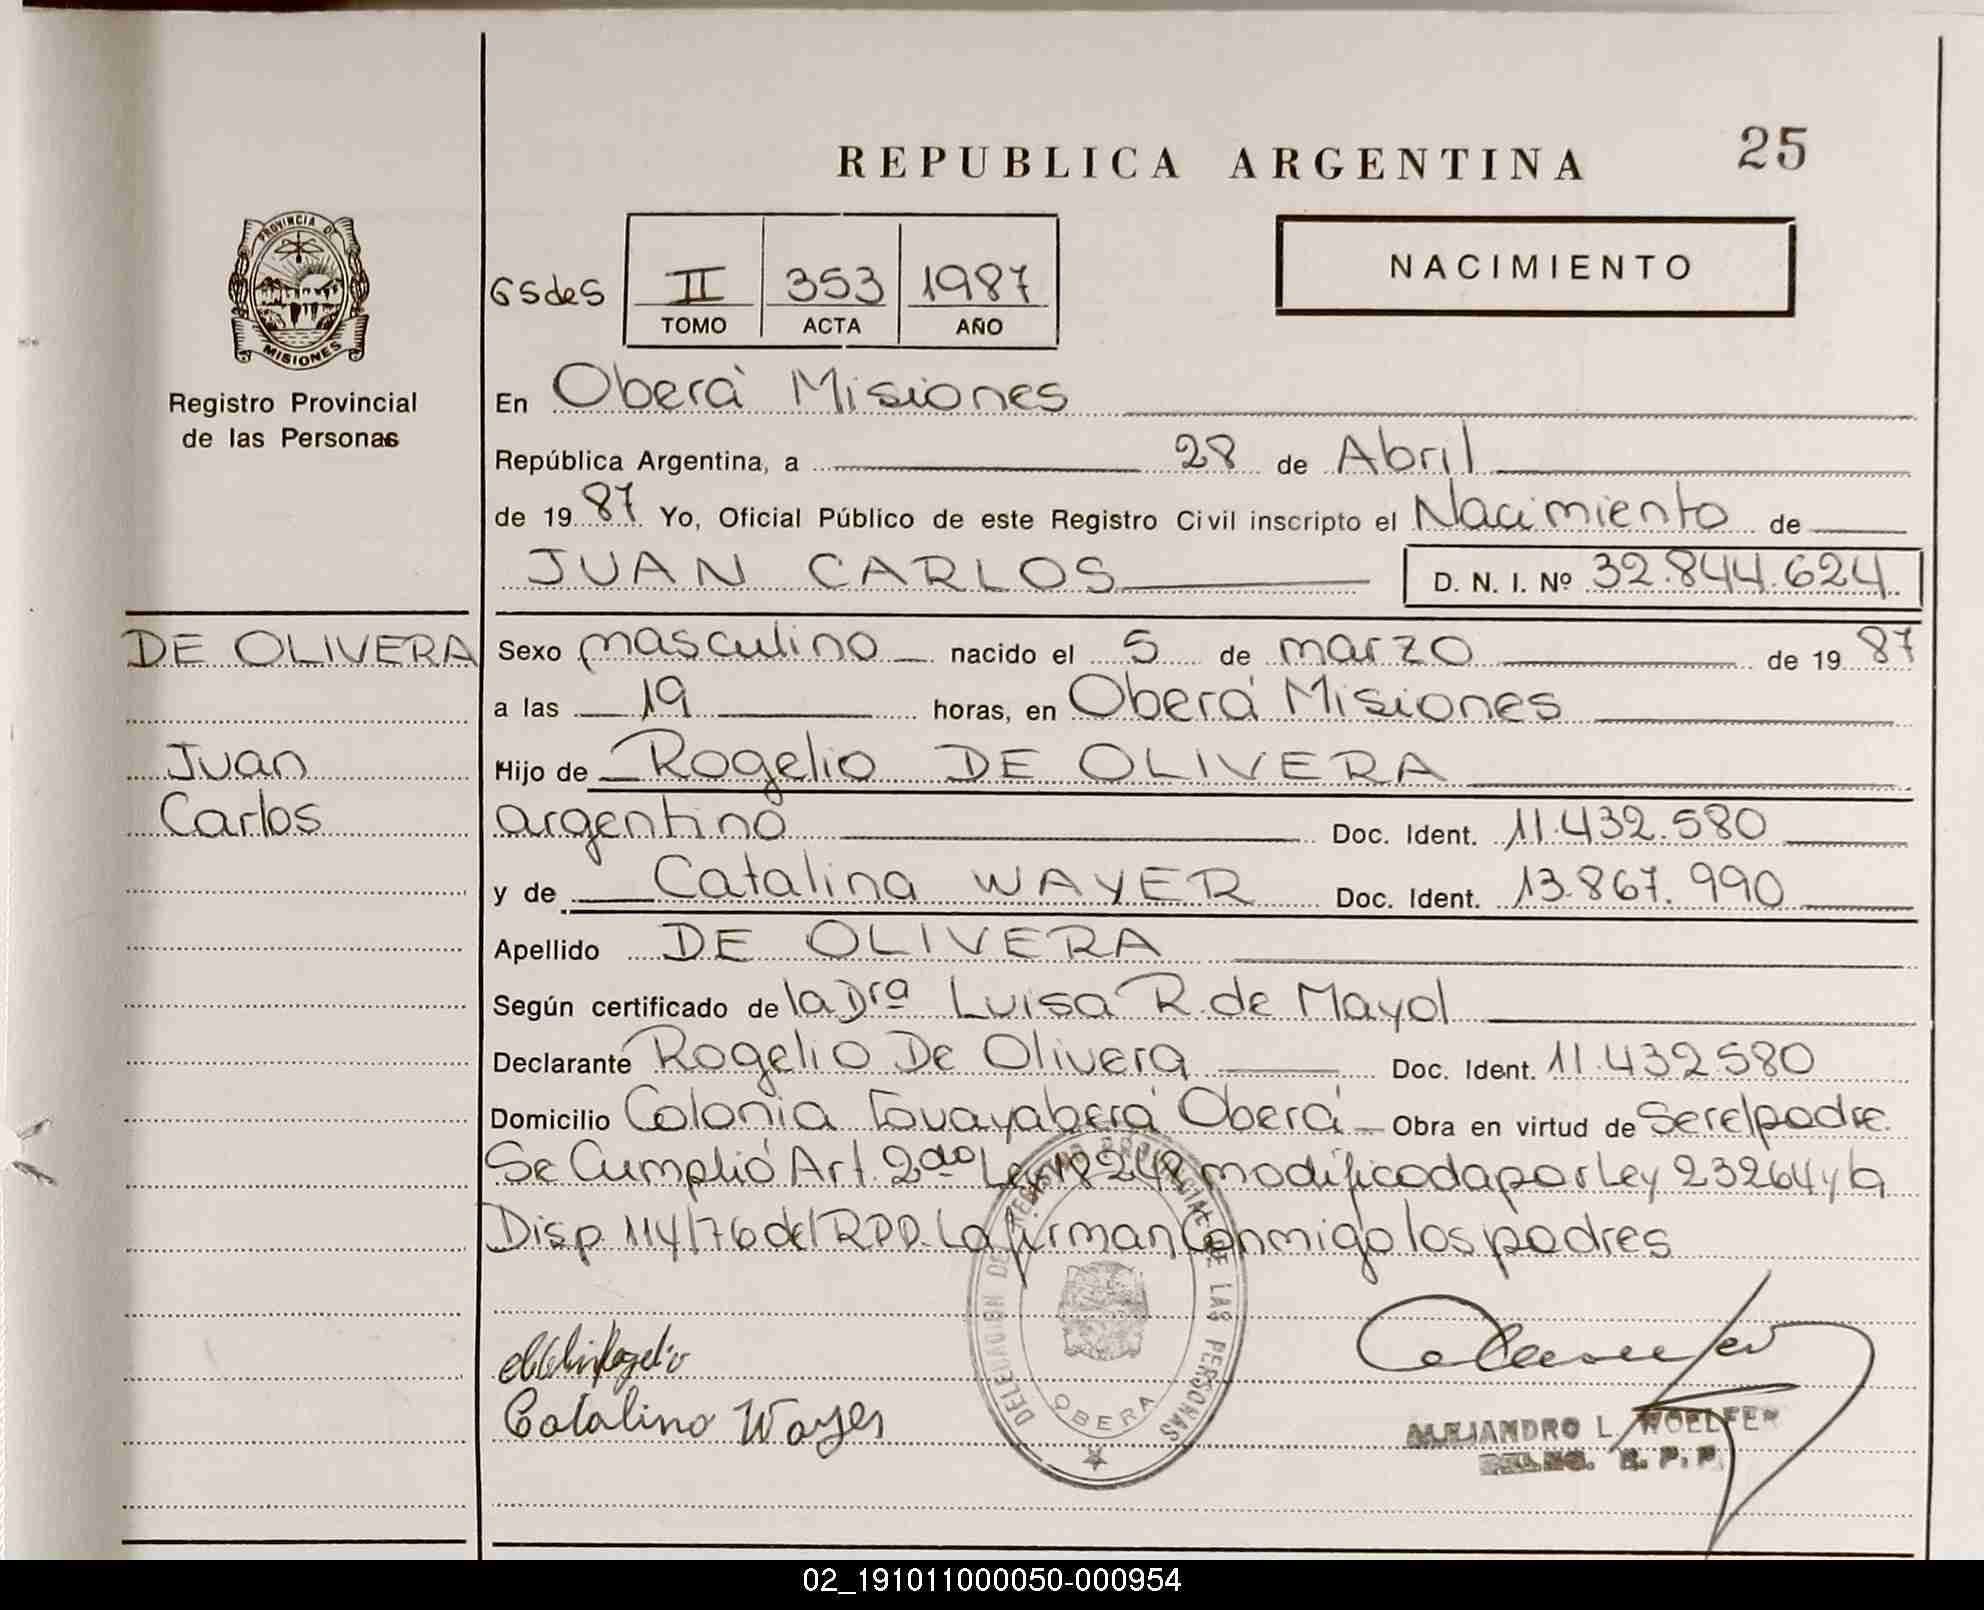 25
REPUBLICA ARGENTINA
NACIMIENTO
PROVINCIA DE
MISIONES
Registro Provincial
de las Personas
GSdeS II 353 1987
TOMO ACTA AÑO
En Oberá Misiones
República Argentina, a 28 de Abril
de 1987 Yo, Oficial Público de este Registro Civil inscripto el Nacimiento de
JUAN CARLOS D. N. I. Nº 32.844.624
DE OLIVERA
Juan
Carlos
Sexo masculino nacido el 5 de marzo de 1987
a las 19 horas, en Oberá Misiones
Hijo de Rogelio DE OLIVERA
argentino Doc. Ident. 11.432.580
y de Catalina WAYER Doc. Ident. 13.867.990
Apellido DE OLIVERA
Según certificado de la Dra Luisa R. de Mayol
Declarante Rogelio De Olivera Doc. Ident. 11.432580
Domicilio Colonia Oberá Obra en virtud de Ser el padre.
Se Cumplió Art. 2do Ley 18248 modificada por Ley 23264 y la
Disp. 114/76 del RPP. La firman Conmigo los padres
DELEGACION DEL REGISTRO PROVINCIAL DE LAS PERSONAS
OBERA
Rogelio
Catalino Wayer
ALEJANDRO L. WOELFER
DELEG. R. P. P.
02_191011000050-000954